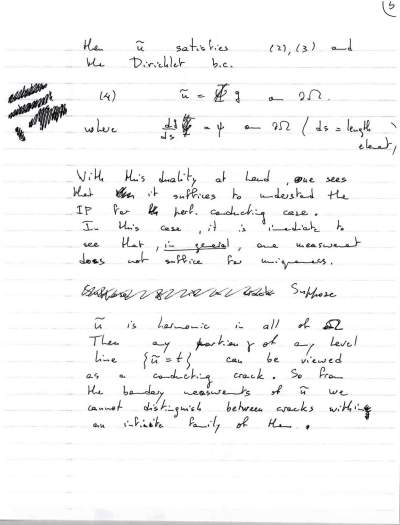 5
then ũ satisfies (2), (3) and
the Dirichlet b.c.
(4) ũ = g on ∂Ω.
where dg/ds = ψ on ∂Ω (ds = length
element)
With this duality at hand, one sees
that it suffices to understand the
IP for perf. conducting case.
In this case, it is imediate to
see that, in general, one measurement
does not suffice for uniqueness.
Suppose
ũ is harmonic in all of Ω
Then any portion γ of any level
line {ũ = t} can be viewed
as a conducting crack. So from
the boundary measurements of ũ we
cannot distinguish between cracks within
an infinite family of them.